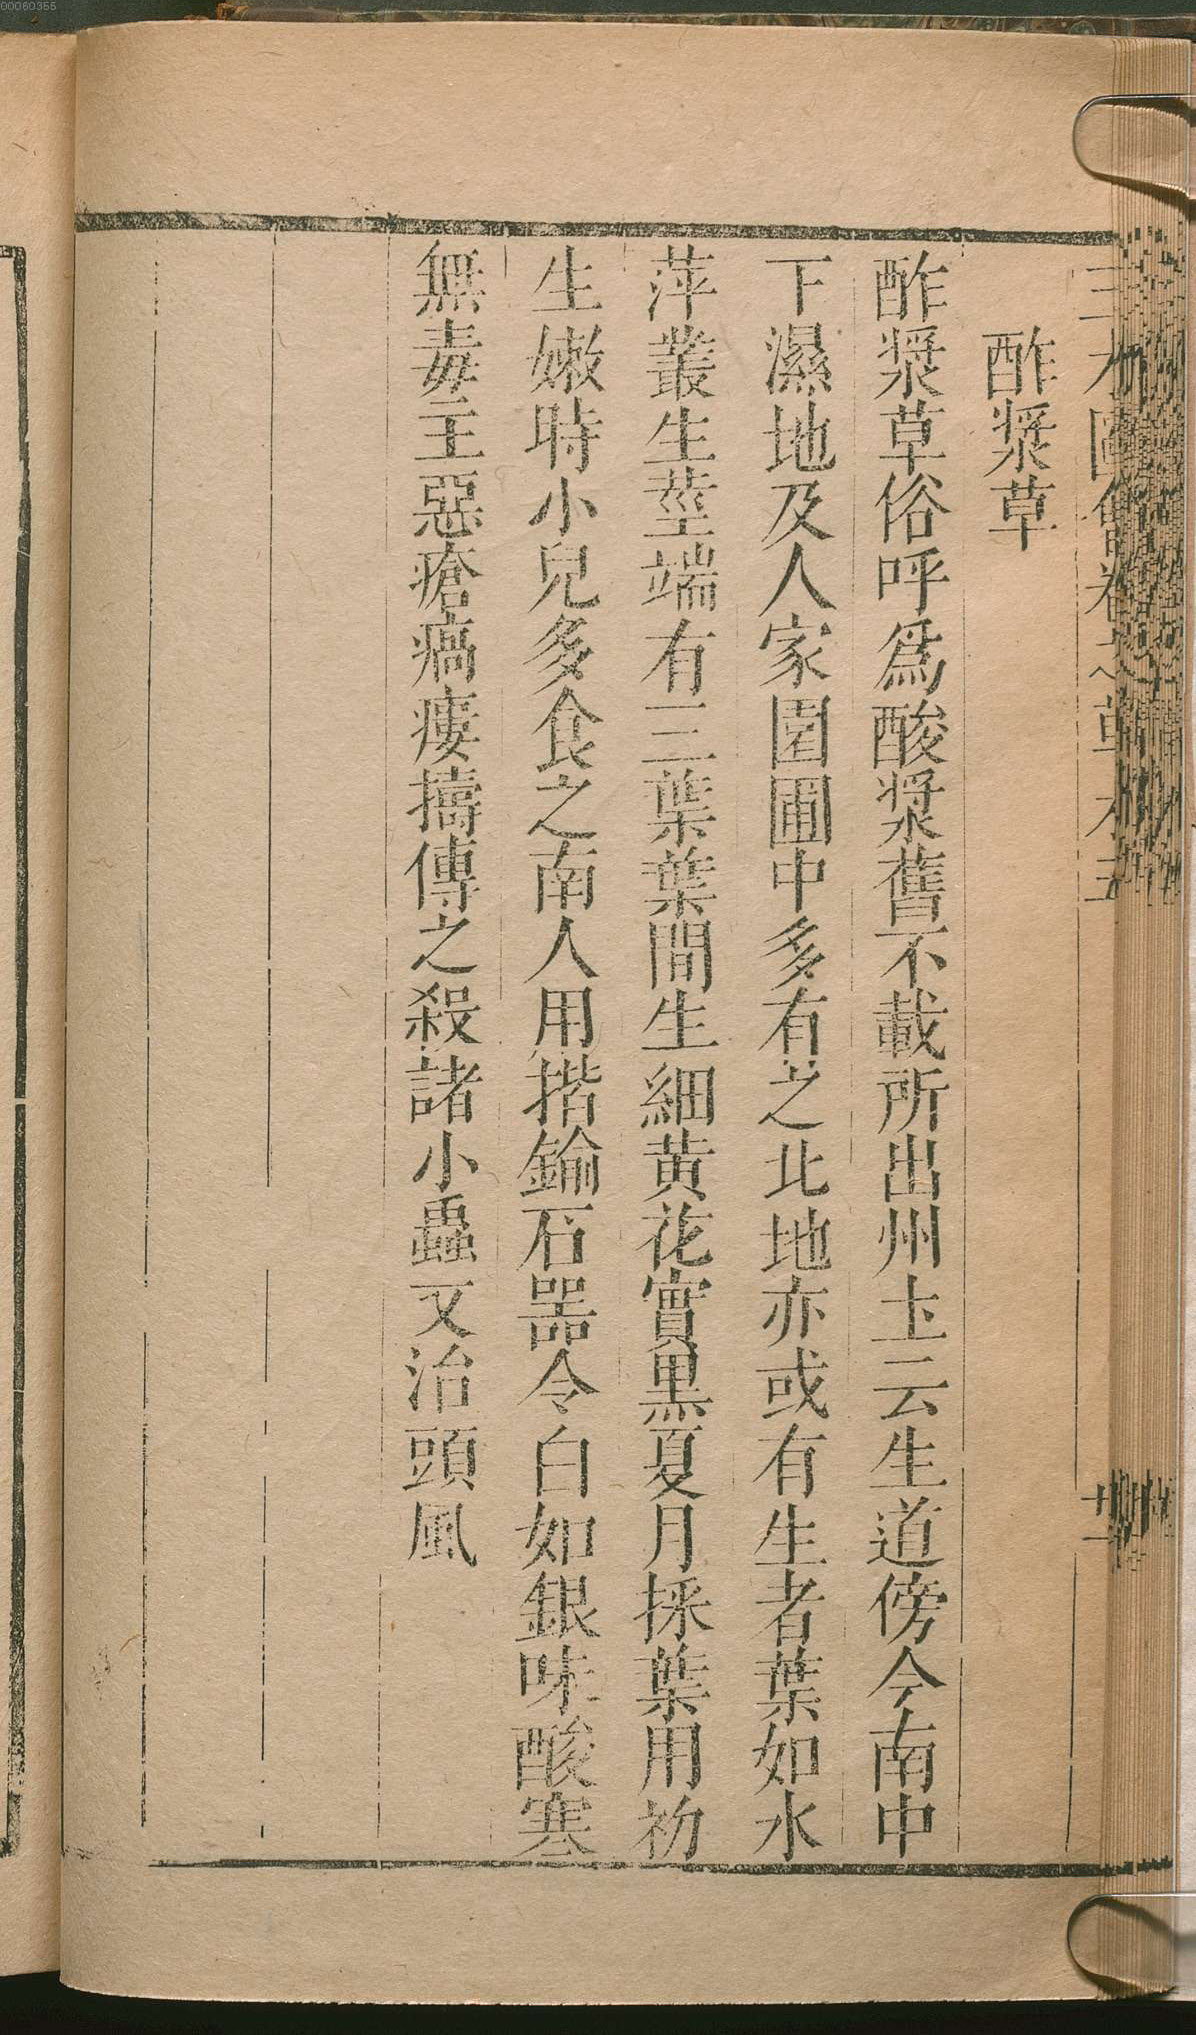 00060355
三才圖會卷之草木五 廿二
酢漿草
酢漿草俗呼爲酸漿舊不載所出州土云生道傍今南中
下濕地及人家園圃中多有之北地亦或有生者葉如水
萍叢生莖端有三葉葉間生細黃花實黑夏月採葉用初
生嫩時小兒多食之南人用揩鍮石器令白如銀味酸寒
無毒主惡瘡瘑瘻擣傅之殺諸小蟲又治頭風